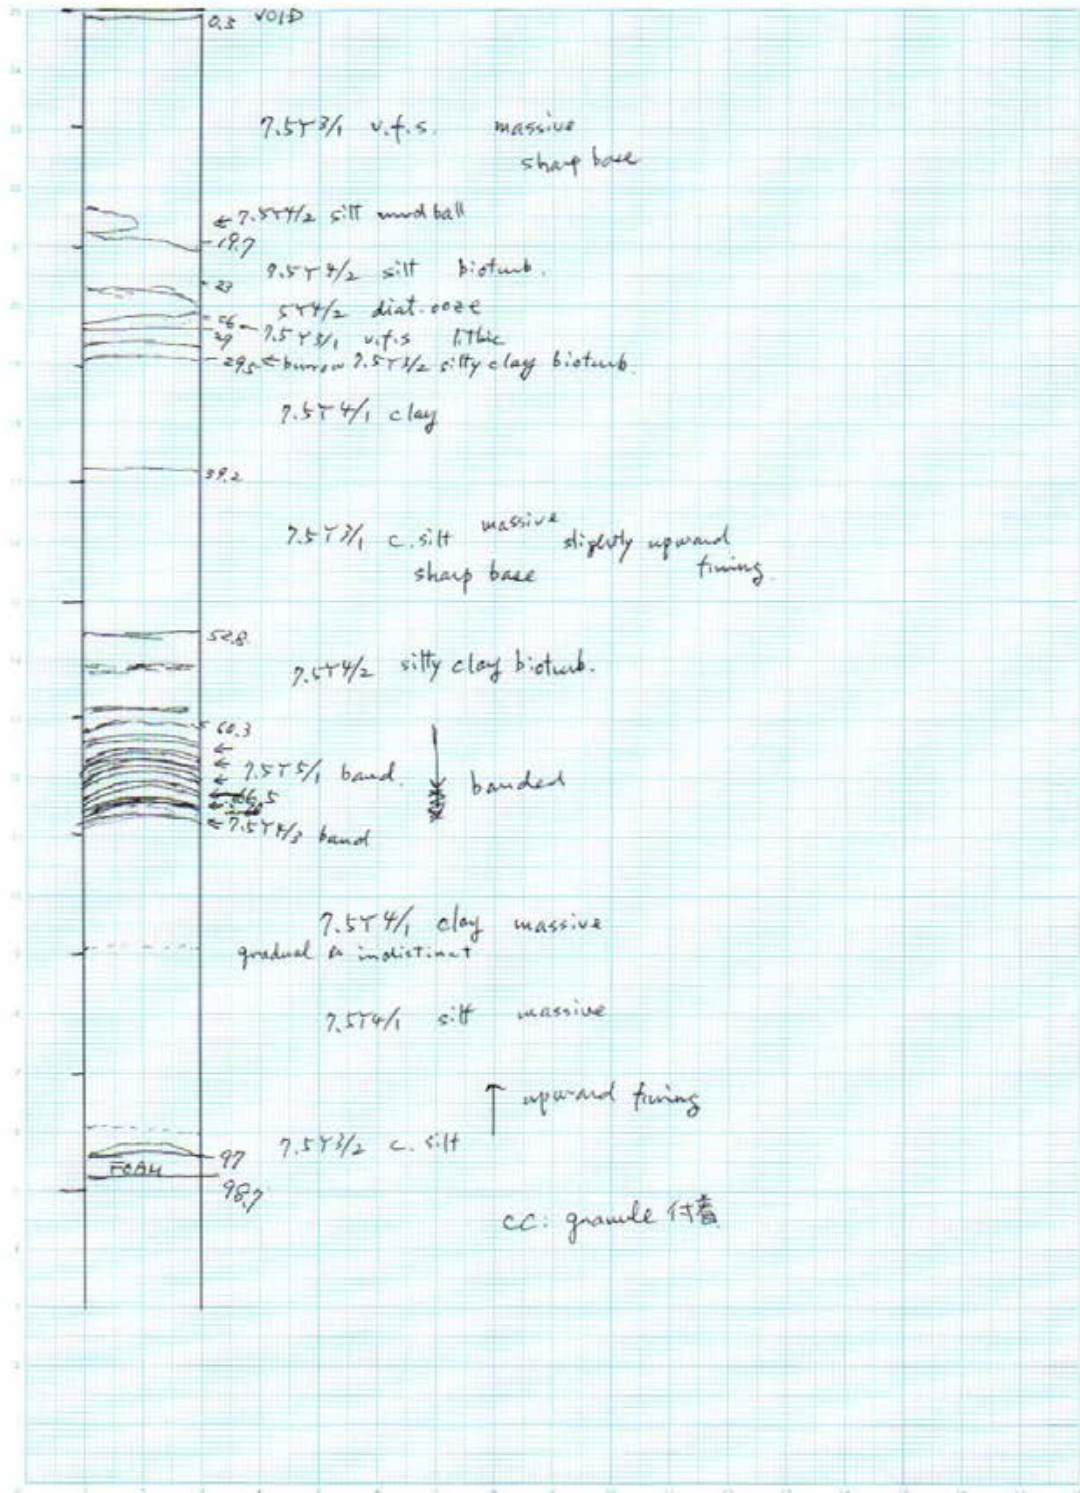 0.3 VOID
7.5Y3/1 v.f.s. massive
sharp base
← 7.5Y4/2 silt mud ball
19.7
7.5Y4/2 silt bioturb.
23
5Y4/2 diat. ooze
26
7.5Y3/1 v.f.s lithic
29
29.5 ← burrow 7.5Y3/2 silty clay bioturb.
7.5Y4/1 clay
39.2
7.5Y3/1 c. silt massive slightly upward
sharp base fining
52.8
7.5Y4/2 silty clay bioturb.
60.3
←
← 7.5Y5/1 band. banded
←
← 66.5
← 7.5Y4/3 band
7.5Y4/1 clay massive
gradual & indistinct
7.5Y4/1 silt massive
↑ upward fining
7.5Y3/2 c. silt
97
FOAM
98.7
CC: granule 付着